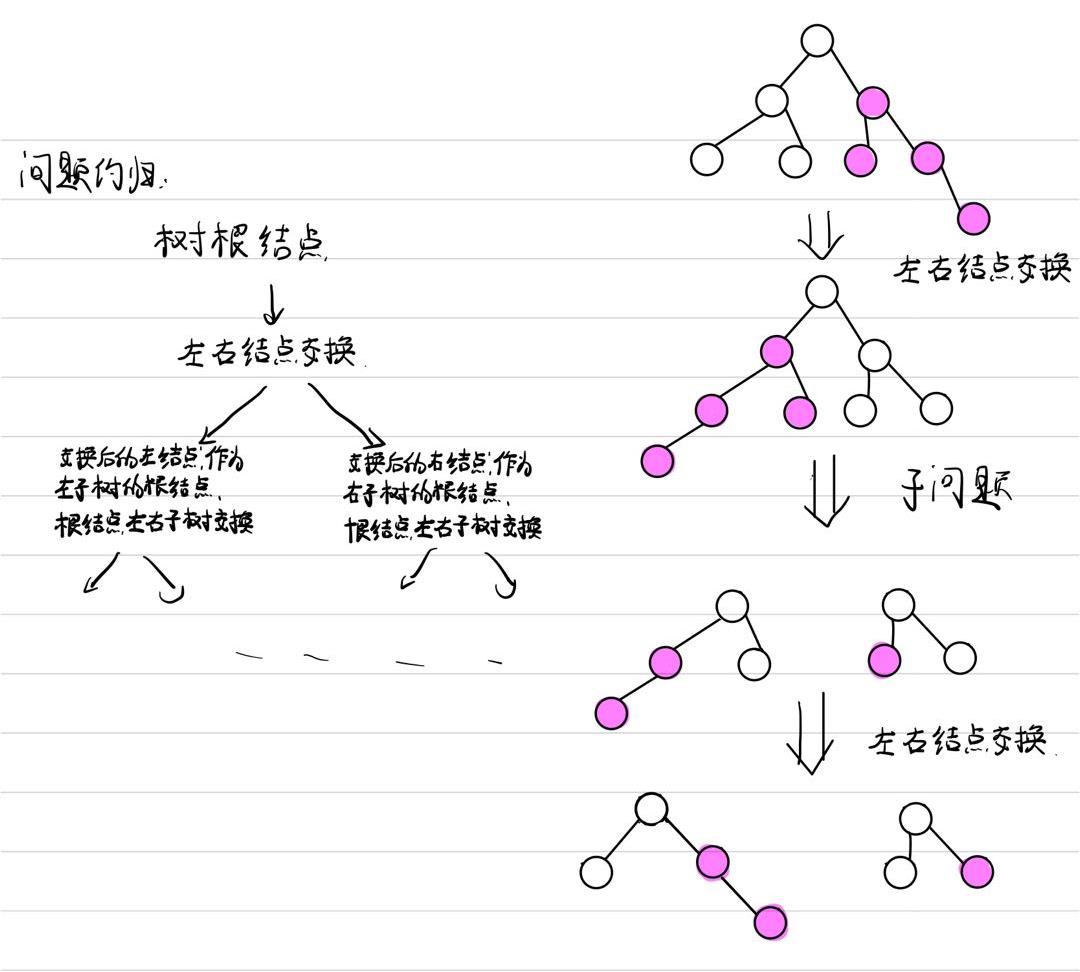 问题约归.
树根结点
左右结点交换
交换后的左结点,作为
左子树的根结点,
根结点左右子树交换
交换后的右结点,作为
右子树的根结点,
根结点左右子树交换
左右结点交换
子问题
左右结点交换